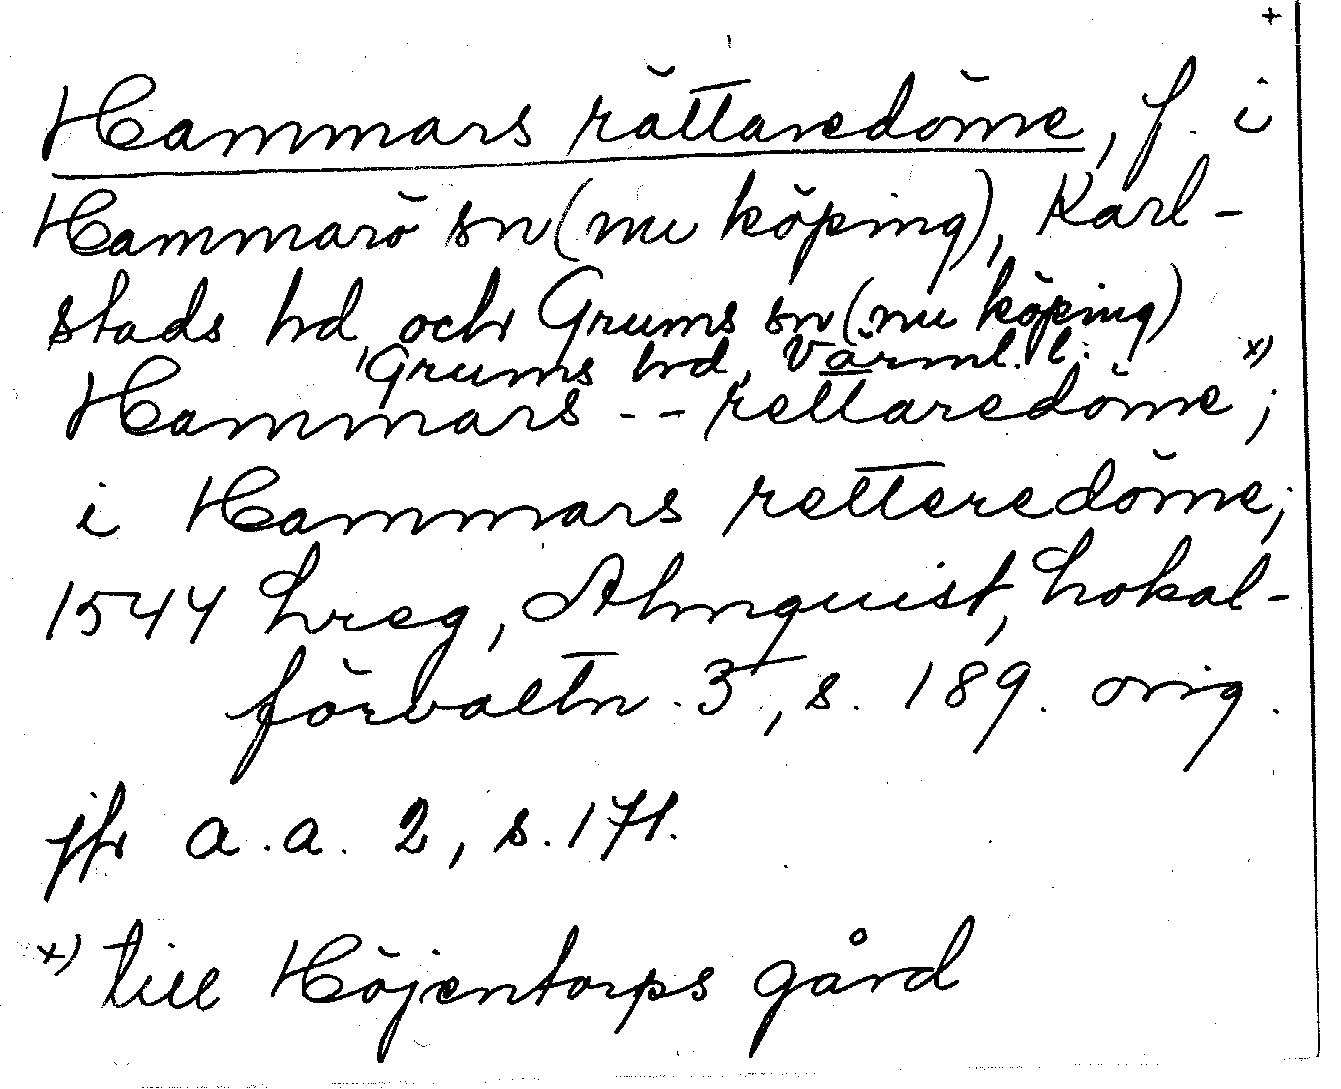 +
Hammars rättaredöme, f. i
Hammarö sn (nu köping), Karl-
stads hd och Grums sn (nu köping)
Grums hd, Värml. l.
Hammars -- rettaredöme x);
i Hammars retteredöme;
1544 Lreg, Almquist, Lokal-
förvaltn. 3, s. 189. orig.
jfr a.a. 2, s. 171.
x) till Höjentorps gård